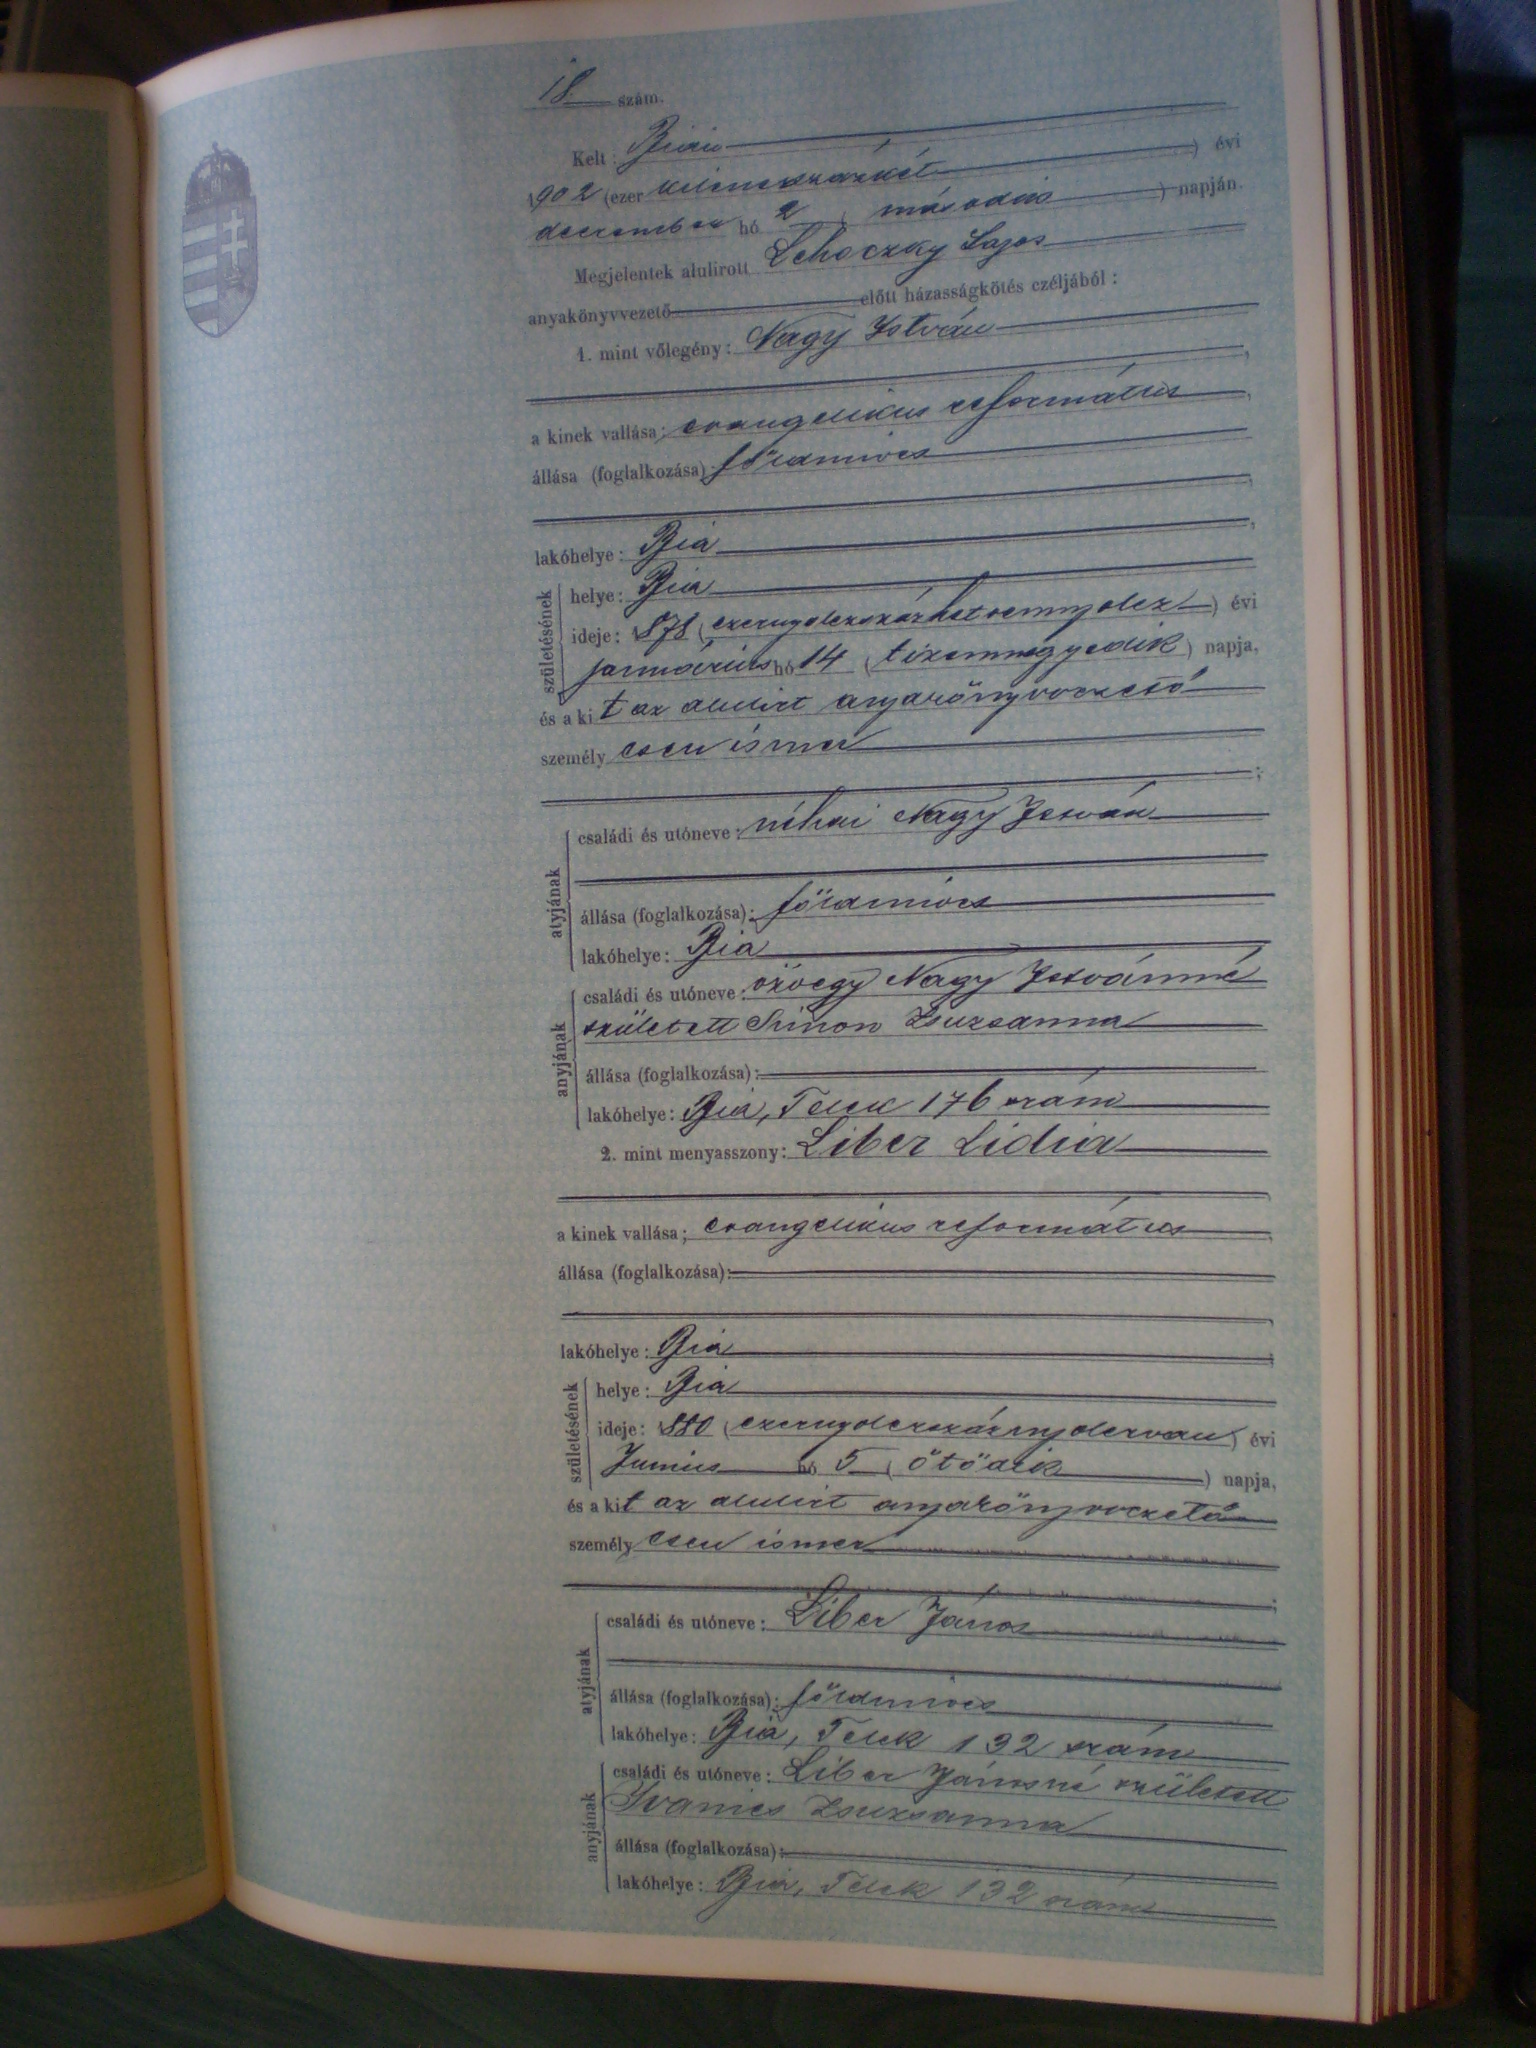 18. szám.
Kelt: Bián
1902 (ezer kilenczszázkét) évi
deczember hó 2 (második) napján.
Megjelentek alulirott Lehoczky Lajos
anyakönyvvezető előtt házasságkötés czéljából:
1. mint vőlegény: Nagy István
a kinek vallása: evangelikus református
állása (foglalkozása): földmives
lakóhelye: Bia
születésének
helye: Bia
ideje: 1878 (ezernyolczszázhetvennyolcz) évi
januárius hó 14 (tizennegyedik) napja,
és a kit az alulirt anyakönyvvezető
személyesen ismer
atyjának
családi és utóneve: néhai Nagy István
állása (foglalkozása): földmives
lakóhelye: Bia
anyjának
családi és utóneve: özvegy Nagy Istvánné
született Simon Zsuzsanna
állása (foglalkozása):
lakóhelye: Bia, Telek 176 szám
2. mint menyasszony: Liber Lidia
a kinek vallása: evangelikus református
állása (foglalkozása):
lakóhelye: Bia
születésének
helye: Bia
ideje: 1880 (ezernyolczszáznyolczvan) évi
Junius hó 5 (ötödik) napja,
és a kit az alulirt anyakönyvvezető
személyesen ismer
atyjának
családi és utóneve: Liber János
állása (foglalkozása): földmives
lakóhelye: Bia, Telek 132 szám
anyjának
családi és utóneve: Liber Jánosné született
Ivanics Zsuzsanna
állása (foglalkozása):
lakóhelye: Bia, Telek 132 szám